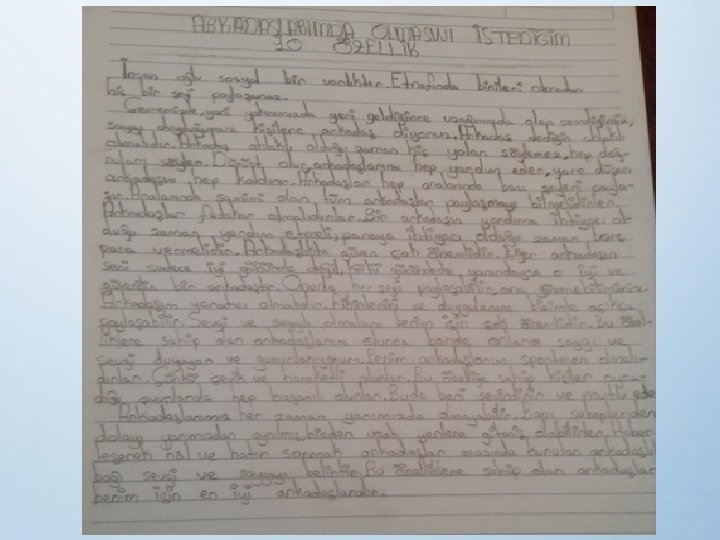 ARKADAŞLARIMDA OLMASINI İSTEDİĞİM
10 ÖZELLİK
İnsan oğlu sosyal bir varlıktır. Etrafında birileri olmadan
hiç bir şeyi paylaşamaz.
Çevremizde, yani yakınımızda yeri geldiğince uzağımızda olan sevdiğimiz,
saygı duyduğumuz kişilere arkadaş diyoruz. Arkadaş dediğin ahlaklı
olmalıdır. Arkadaş ahlaklı olduğu zaman hiç yalan söylemez, hep doğ-
ruları söyler. Dürüst olur, arkadaşlarına hep yardım eder, yere düşen
arkadaşını hep kaldırır. Arkadaşlar hep aralarında bazı şeyleri payla-
şır. Aralarında samimi olan tüm arkadaşlar paylaşmayı bilmelidirler.
Arkadaşlar fedakar olmalıdırlar. Bir arkadaşın yardıma ihtiyacı ol-
duğu zaman yardım etmeli, paraya ihtiyacı olduğu zaman borç
para vermelidir. Arkadaşlıkta güven çok önemlidir. Eğer arkadaşın
seni sadece iyi gününde değil, kötü gününde de yanındaysa o iyi ve
güvenilir bir arkadaştır. Onunla her şeyi paylaşabilir, ona güvenebilirsiniz.
Arkadaşım yaratıcı olmalıdır. Fikirlerini ve duygularını bizimle açıkça
paylaşabilir. Sevgi ve saygılı olmaları benim için çok önemlidir. Bu özel-
liklere sahip olan arkadaşlarım olunca bende onlara saygı ve
sevgi duyuyor ve gururlanıyorum. Benim arkadaşlarım sportmen olmalı-
dırlar. Çünkü çevik ve hareketli olurlar. Bu özelliğe sahip kişiler oyna-
dığı oyunlarda hep başarılı olurlar. Buda beni sevindirir ve mutlu eder
Arkadaşlarımız her zaman yanımızda olmayabilir. Bazı sebeplerden
dolayı yanımızdan ayrılmış, bizden uzak yerlere gitmiş olabilirler. Haber-
leşerek hal ve hatır sormak arkadaşlar arasında kurulan arkadaşlık
bağı sevgi ve saygıyı belirtir. Bu özeliklere sahip olan arkadaşlar
benim için en iyi arkadaşlardır.